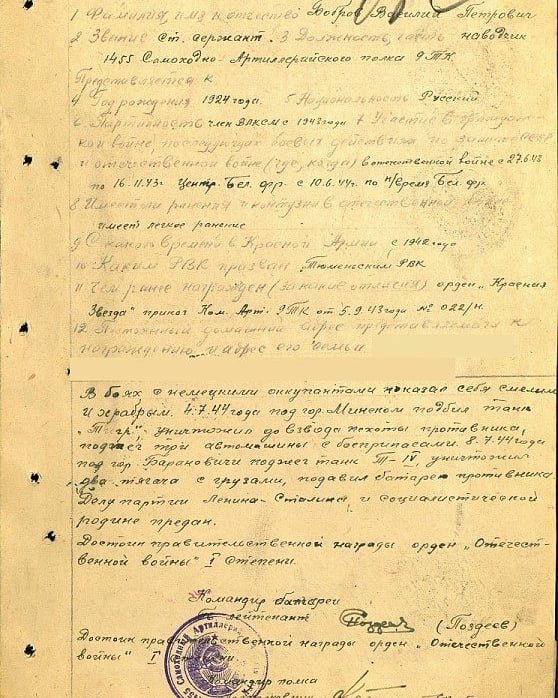 1 Фамилия, имя и отчество Бобров Василий Петрович
2 Звание ст. сержант. 3 Должность, часть наводчик
1455 Самоходно-Артиллерийского полка 9 ТК.
Представляется к
4 Год рождения 1924 года. 5 Национальность Русский
6 Партийность член ВЛКСМ с 1943 года 7 Участие в граждан
ской войне, последующих боевых действиях по защите СССР
и отечественной войне (где, когда) в отечественной войне с 27.6.43
по 16.11.43г. Центр. Бел. фр. с 10.6.44г. по н/время Бел. фр.
8 Имеет ли ранения и контузии в отечественной войне
имеет легкое ранение
9 С какого времени в Красной Армии с 1942 года
10 Каким РВК призван Тюменским РВК
11 Чем ранее награжден (за какие отличия) орден „Красная
Звезда" приказ Ком. Арт. 9 ТК от 5.9.43 года № 022/н.
12 Постоянный домашний адрес представляемого к
награждению и адрес его семьи
В боях с немецкими оккупантами показал себя смелым
и храбрым. 4.7.44 года под гор. Минском подбил танк
„Тигр", уничтожил до взвода пехоты противника,
поджег три автомашины с боеприпасами. 8.7.44 года
под гор. Барановичи поджег танк Т-IV, уничтожил
два тягача с грузами, подавил батарею противника.
Делу партии Ленина-Сталина и социалистической
родине предан.
Достоин правительственной награды орден „Отечест-
венной войны" I степени.
Командир батареи
лейтенант (Поздеев)
Достоин правительственной награды орден „Отечественной
войны" I степени.
Командир полка